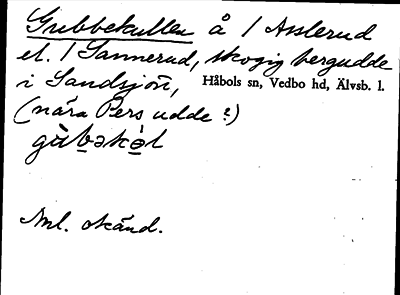 Gubbekullen å 1 Asslerud
el. 1 Sannerud, skogig bergudde
i Sandsjön, Håbols sn, Vedbo hd, Älvsb. l.
(nära Pers udde?)
Ml. okänd.